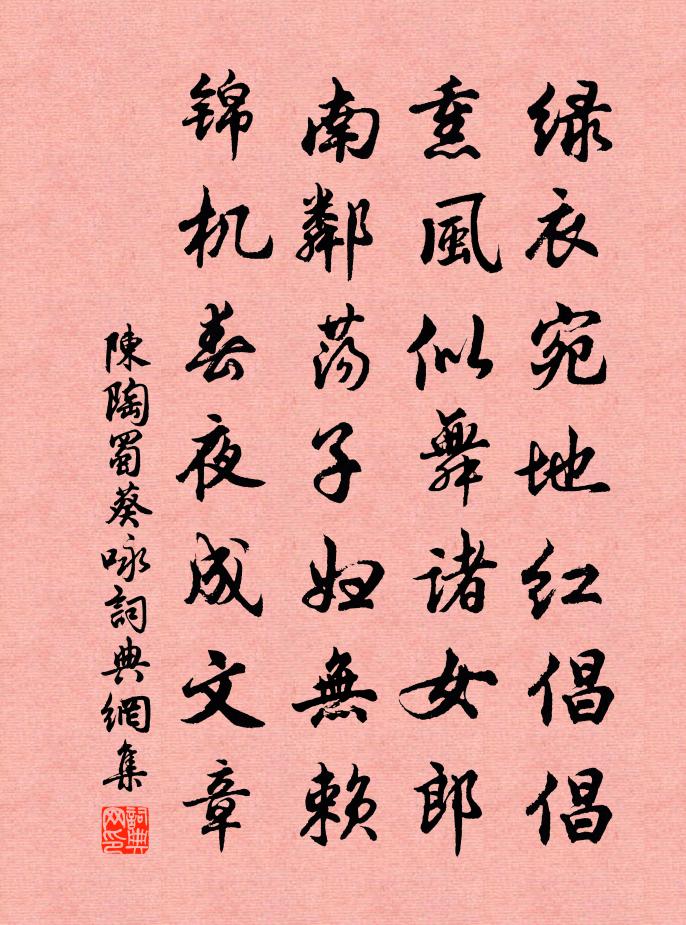 绿衣宛地红倡倡
熏風似舞諸女郎
南鄰荡子妇無赖
锦机春夜成文章
陳陶蜀葵咏詞典網集
詞典网印